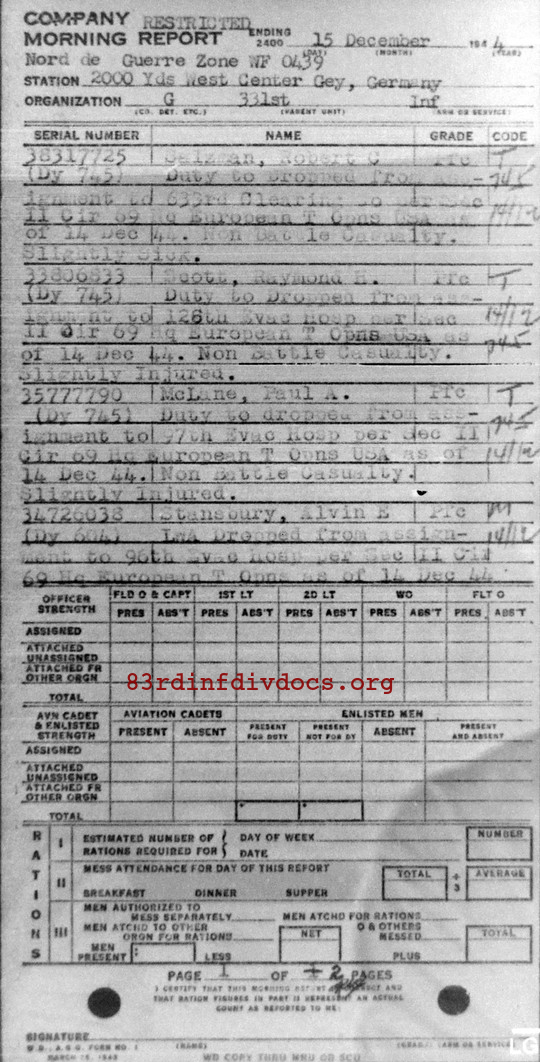 COMPANY RESTRICTED
MORNING REPORT ENDING 2400 15 December 194 4
(DAY) (MONTH) (YEAR)
Nord de Guerre Zone WF 0439
STATION 2000 Yds West Center Gey, Germany
ORGANIZATION G 331st Inf
(CO. DET. ETC.) (PARENT UNIT) (ARM OR SERVICE)
SERIAL NUMBER NAME GRADE CODE
38317725 Salzman, Robert C Pfc T
(Dy 745) Duty to Dropped from ass- 745
ignment to 633rd Clearing Co per Sec 14/12
II Cir 69 Hq European T Opns USA as
of 14 Dec 44. Non Battle Casualty.
Slightly Sick.
33806833 Scott, Raymond H. Pfc T
(Dy 745) Duty to Dropped from ass-
ignment to 128th Evac Hosp per Sec 14/12
II Cir 69 Hq European T Opns USA as 745
of 14 Dec 44. Non Battle Casualty.
Slightly Injured.
35777790 McLane, Paul A. Pfc T
(Dy 745) Duty to dropped from ass- 745
ignment to 97th Evac Hosp per Sec II
Cir 69 Hq European T Opns USA as of 14/12
14 Dec 44. Non Battle Casualty.
Slightly Injured.
34726038 Stansbury, Alvin E Pfc M
(Dy 604) LWA Dropped from assign- 14/12
ment to 96th Evac Hosp per Sec II Cir
69 Hq European T Opns as of 14 Dec 44
OFFICER STRENGTH FLD O & CAPT 1ST LT 2D LT WO FLT O
PRES ABS'T PRES ABS'T PRES ABS'T PRES ABS'T PRES ABS'T
ASSIGNED
ATTACHED UNASSIGNED
ATTACHED FR OTHER ORGN
83rdinfdivdocs.org
TOTAL
AVN CADET & ENLISTED STRENGTH AVIATION CADETS ENLISTED MEN
PRESENT ABSENT PRESENT FOR DUTY PRESENT NOT FOR DY ABSENT PRESENT AND ABSENT
ASSIGNED
ATTACHED UNASSIGNED
ATTACHED FR OTHER ORGN
TOTAL
RATIONS
I ESTIMATED NUMBER OF RATIONS REQUIRED FOR DAY OF WEEK DATE NUMBER
II MESS ATTENDANCE FOR DAY OF THIS REPORT TOTAL ÷ 3 AVERAGE
BREAKFAST DINNER SUPPER
III MEN AUTHORIZED TO MESS SEPARATELY MEN ATCHD FOR RATIONS
MEN ATCHD TO OTHER ORGN FOR RATIONS NET O & OTHERS MESSED TOTAL
MEN PRESENT: LESS PLUS
PAGE 1 OF 2 PAGES
I CERTIFY THAT THIS MORNING REPORT IS CORRECT AND
THAT RATION FIGURES IN PART III REPRESENT AN ACTUAL
COUNT AS REPORTED TO ME:
SIGNATURE
W.D., A.G.O. FORM NO. 1 (NAME) (GRADE) (ARM OR SERVICE)
WD COPY THRU MRU OR SCU